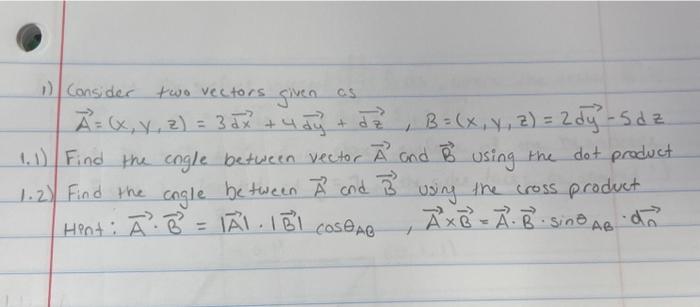 1) Consider two vectors given as
A⃗ = (x, y, z) = 3d⃗x + 4d⃗y + d⃗z , B = (x, y, z) = 2d⃗y - 5dz
1.1) Find the angle between vector A⃗ and B⃗ using the dot product
1.2) Find the angle between A⃗ and B⃗ using the cross product
Hint: A⃗ · B⃗ = |A⃗| · |B⃗| cosθAB , A⃗ x B⃗ = A⃗ · B⃗ · sinθAB · d⃗n